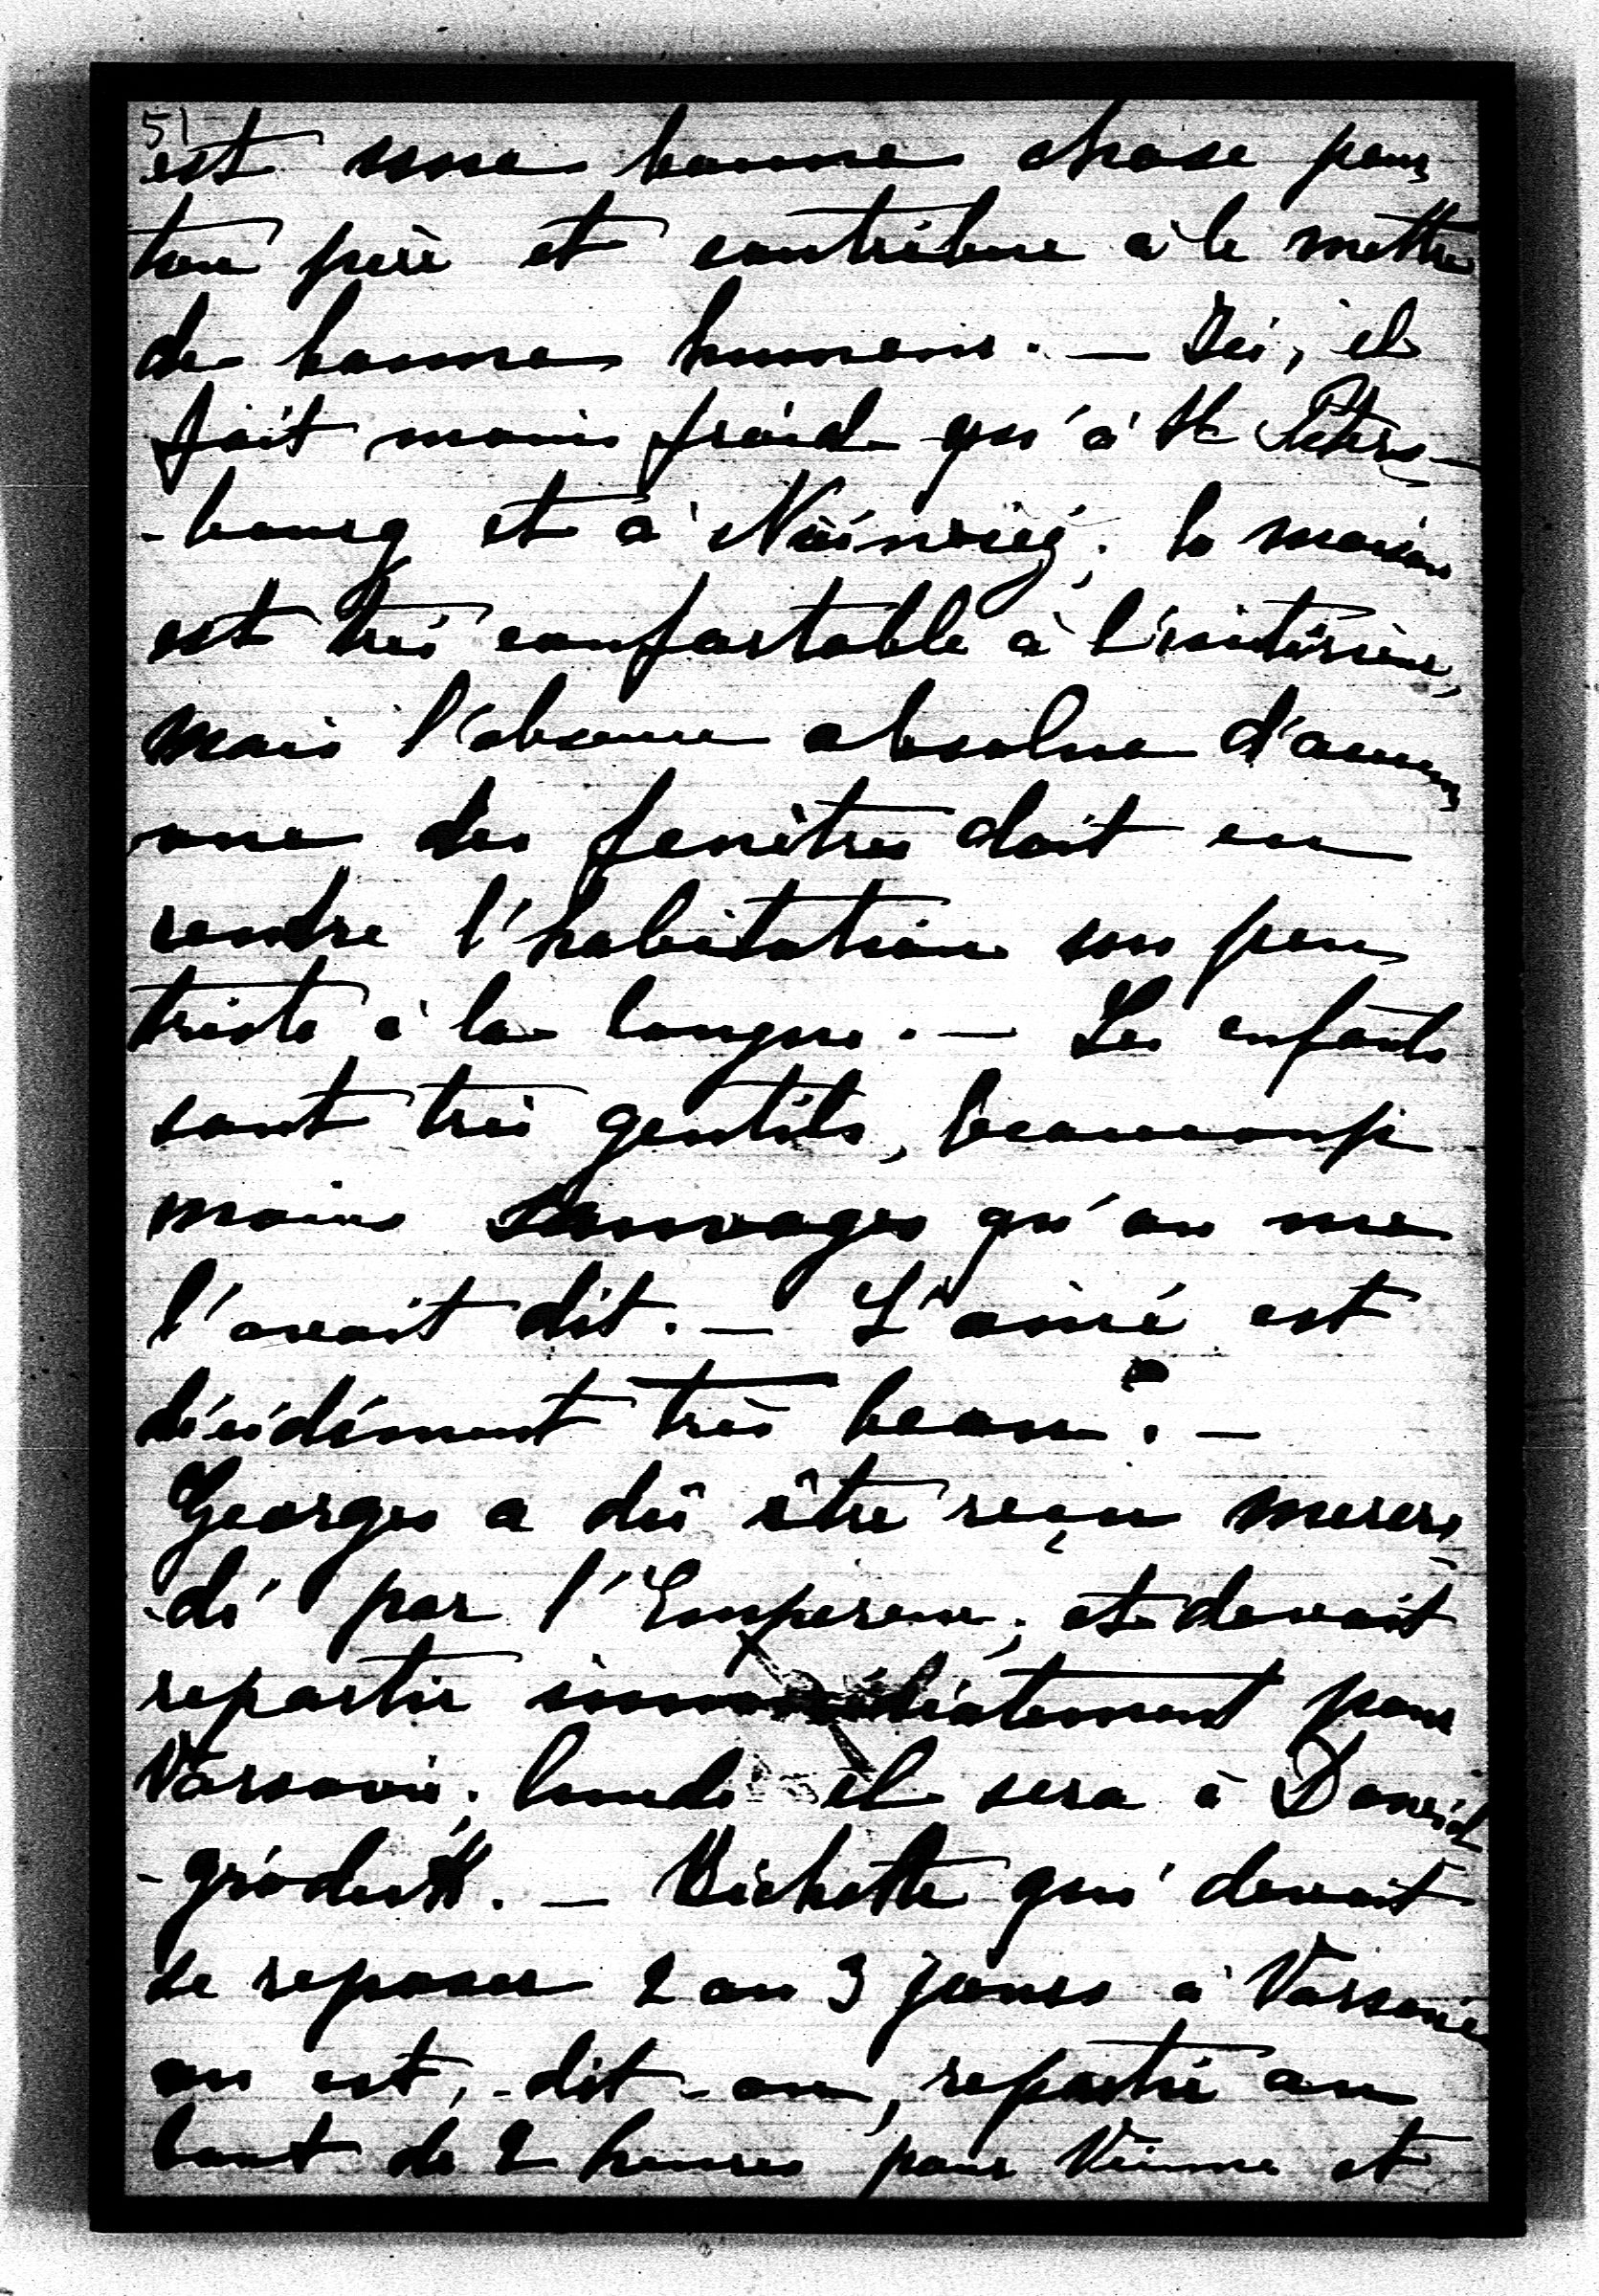 51
est une bonne chose pour
ton père et contribue à le mettre
de bonne humeur. — Ici, il
fait moins froid qu'à St Péters-
-bourg et à ; la maison
est très confortable à l'intérieur,
mais l'absence absolue d'aucu
une des fenêtres doit en
rendre l'habitation un peu
triste à la longue. — Les enfants
sont très gentils, beaucoup
moins sauvages qu'on me
l'avait dit. — L'ainé est
décidément très beau. —
Georges a dû être reçu mercre-
-di par l'Empereur, et devait
repartir immédiatement pour
Varsovie; lundi il sera à David
-gródek. — Bichette qui devait
se reposer 2 ou 3 jours à Varsovie
en est, -dit-on, repartie au
bout de 2 heures pour Vienne et